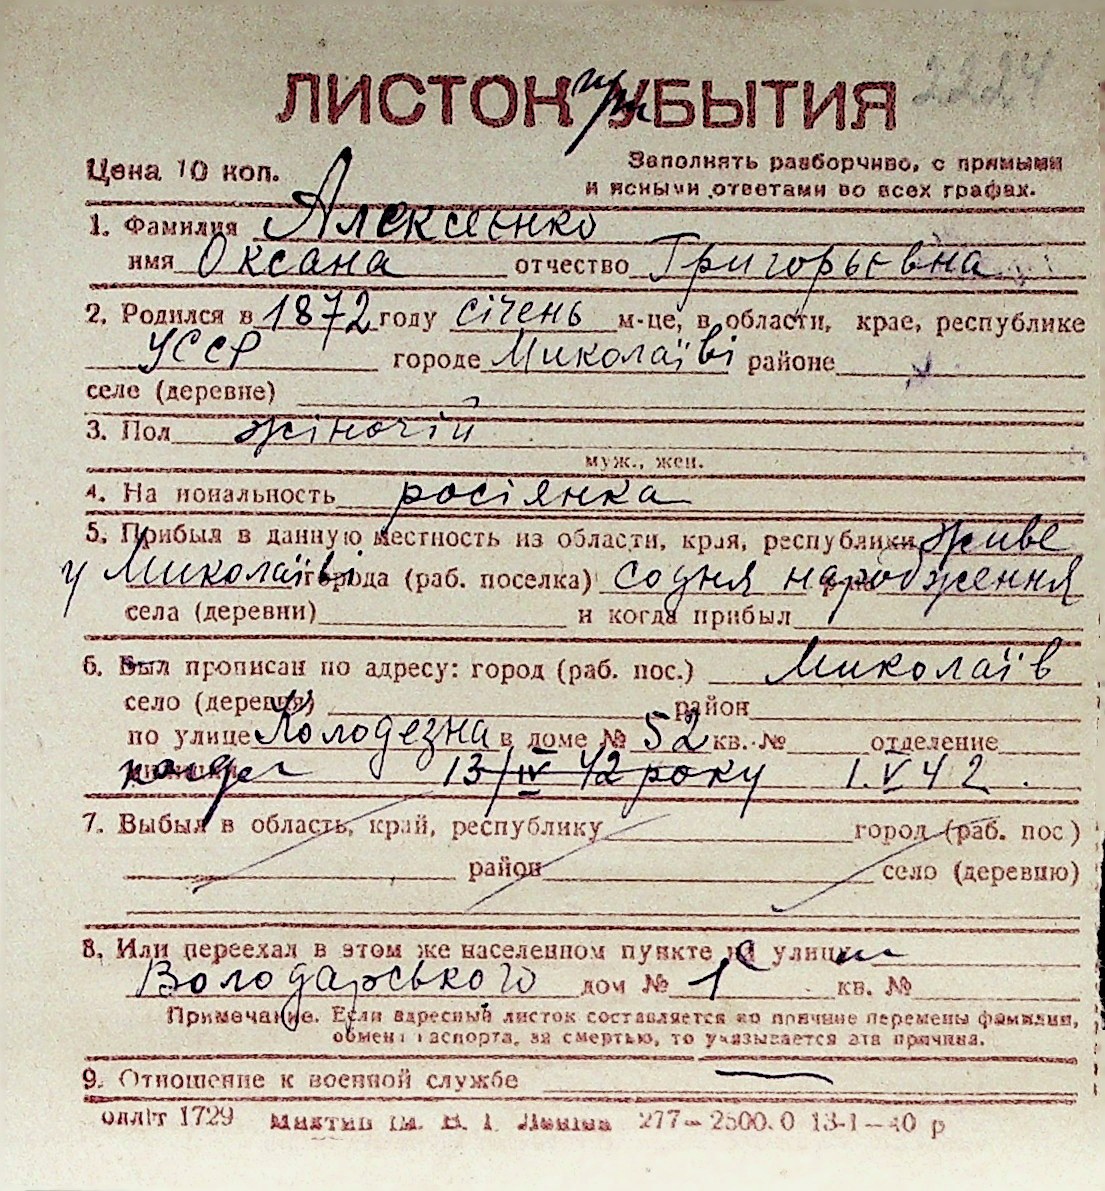 2224
ЛИСТОК при УБЫТИЯ
Цена 10 коп.
Заполнять разборчиво, с прямыми
и ясными ответами во всех графах.
1. Фамилия Алексеєнко
имя Оксана отчество Григорьевна
2. Родился в 1872 году січень м-це, в области, крае, республике
УССР городе Миколаїві районе
селе (деревне)
3. Пол жіночій
муж., жен.
4. На иональность росіянка
5. Прибыл в данную местность из области, края, республики живе
у Миколаїві города (раб. поселка) содня народження
села (деревни) и когда прибыл
6. Был прописан по адресу: город (раб. пос.) Миколаїв
село (деревня) район
по улице Колодезна в доме № 52 кв. № отделение
13/IV 42 року 1.V 42.
7. Выбыл в область, край, республику город (раб. пос)
район село (деревню)
8. Или переехал в этом же населенном пункте с улицы
Володарського дом № 1 кв. №
Примечание. Если адресный листок составляется по причине перемены фамилии,
обмен паспорта, за смертью, то указывается эта причина.
9. Отношение к военной службе —
1729 ім. В. І. Леніна 277—2500.0 13-1—40 р